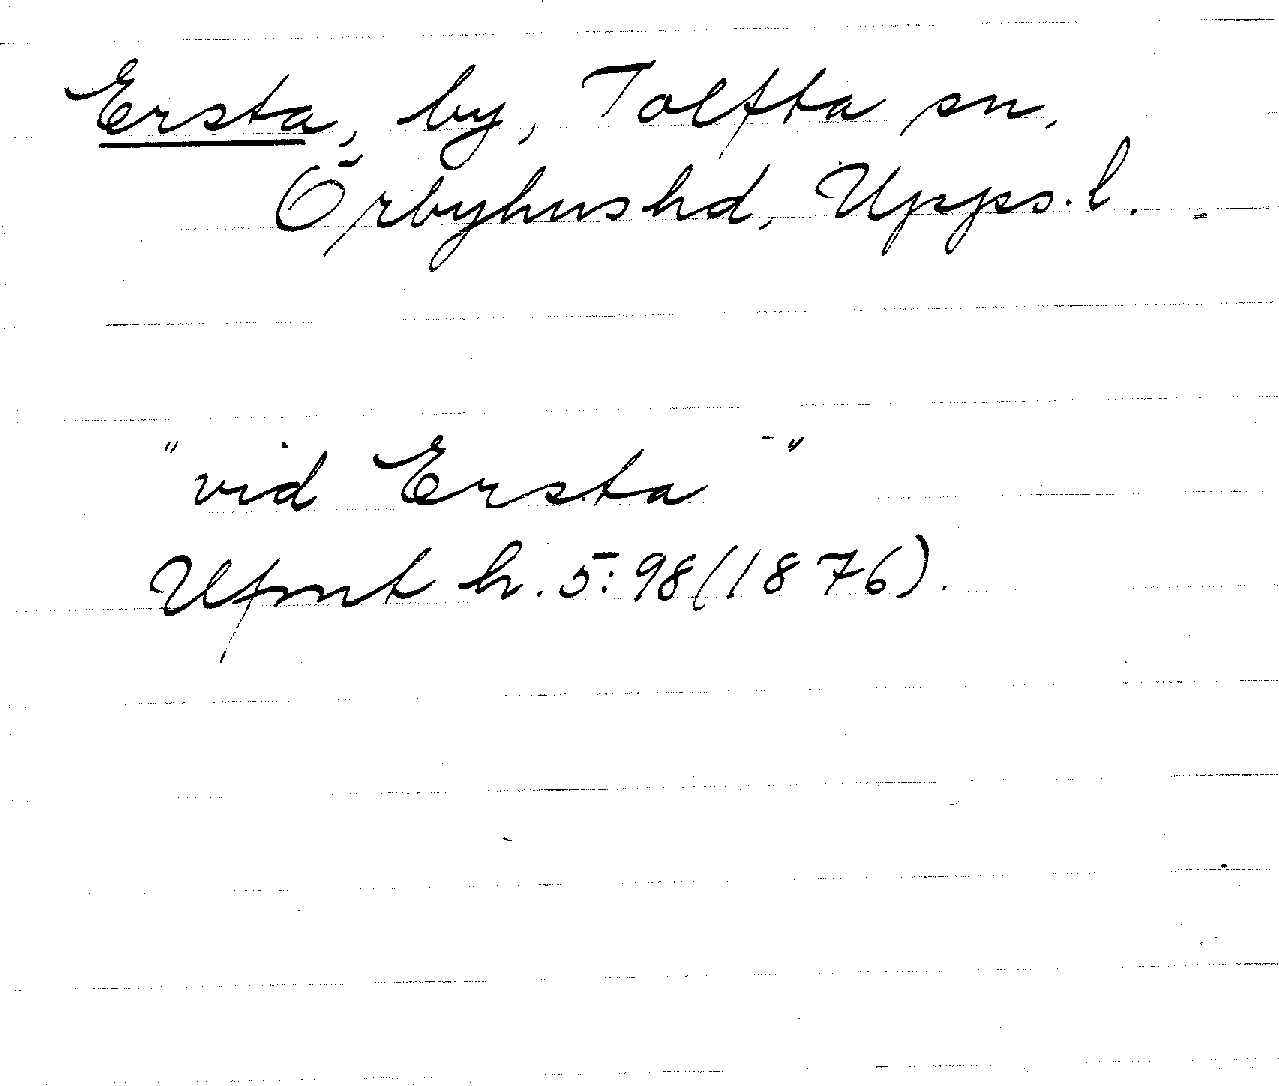 Ersta, by, Tolfta sn,
Örbyhushd, Upps. l.
"vid Ersta - "
Ufmt h. 5:98 (1876).